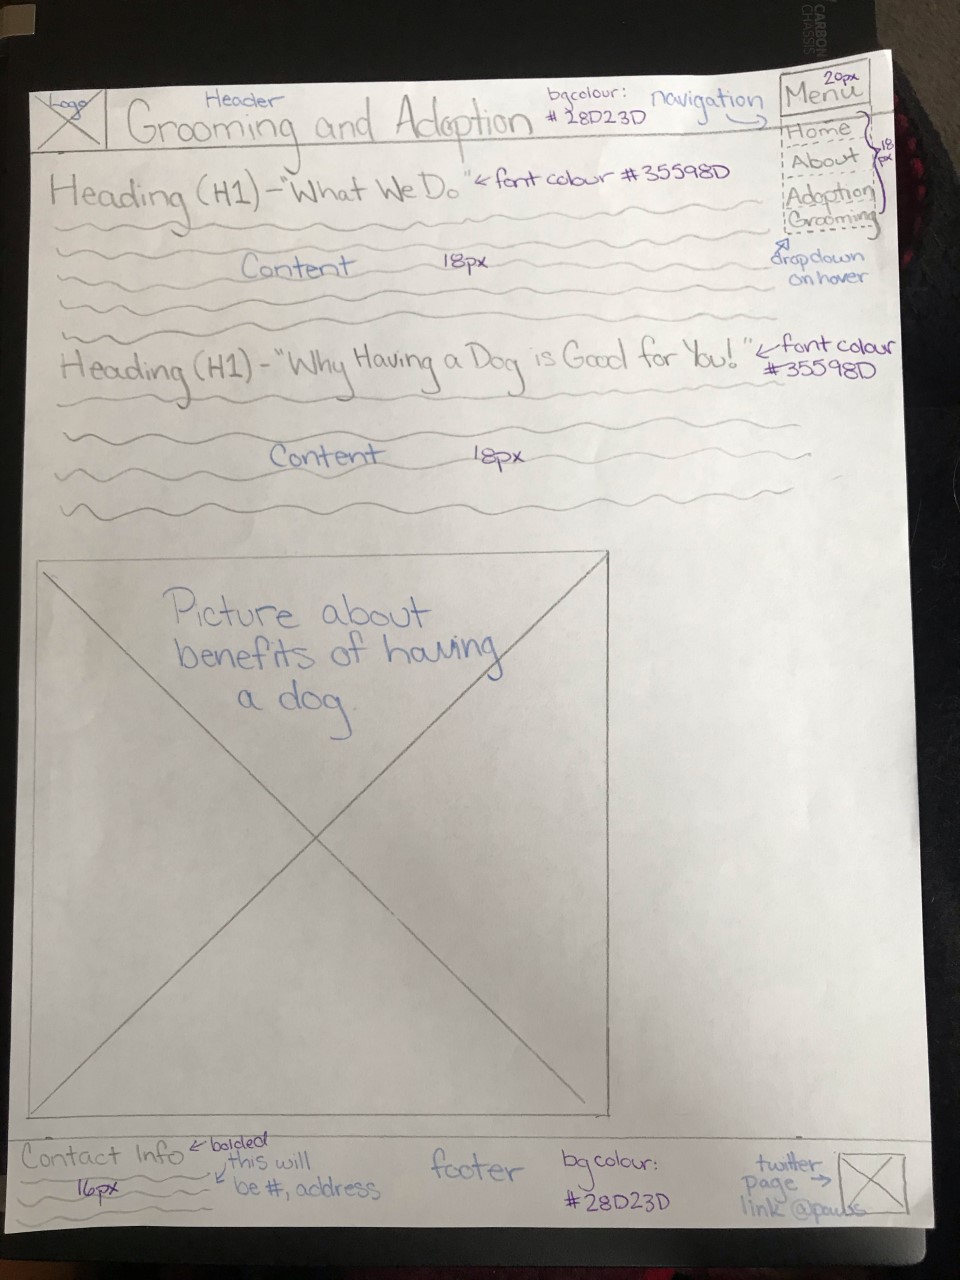 CARBON
CHASSIS
Logo
Header
Grooming and Adoption
bgcolour:
#28D23D
navigation
20px
Menu
Home
About
Adoption
Grooming
18
px
dropdown
on hover
Heading (H1) - "What We Do"
font colour #35598D
Content 18px
Heading (H1) - "Why Having a Dog is Good for You!"
font colour
#35598D
Content 18px
Picture about
benefits of having
a dog.
Contact Info
bolded
this will
be #, address
16px
footer
bg colour:
#28D23D
twitter
page
link @pawbs